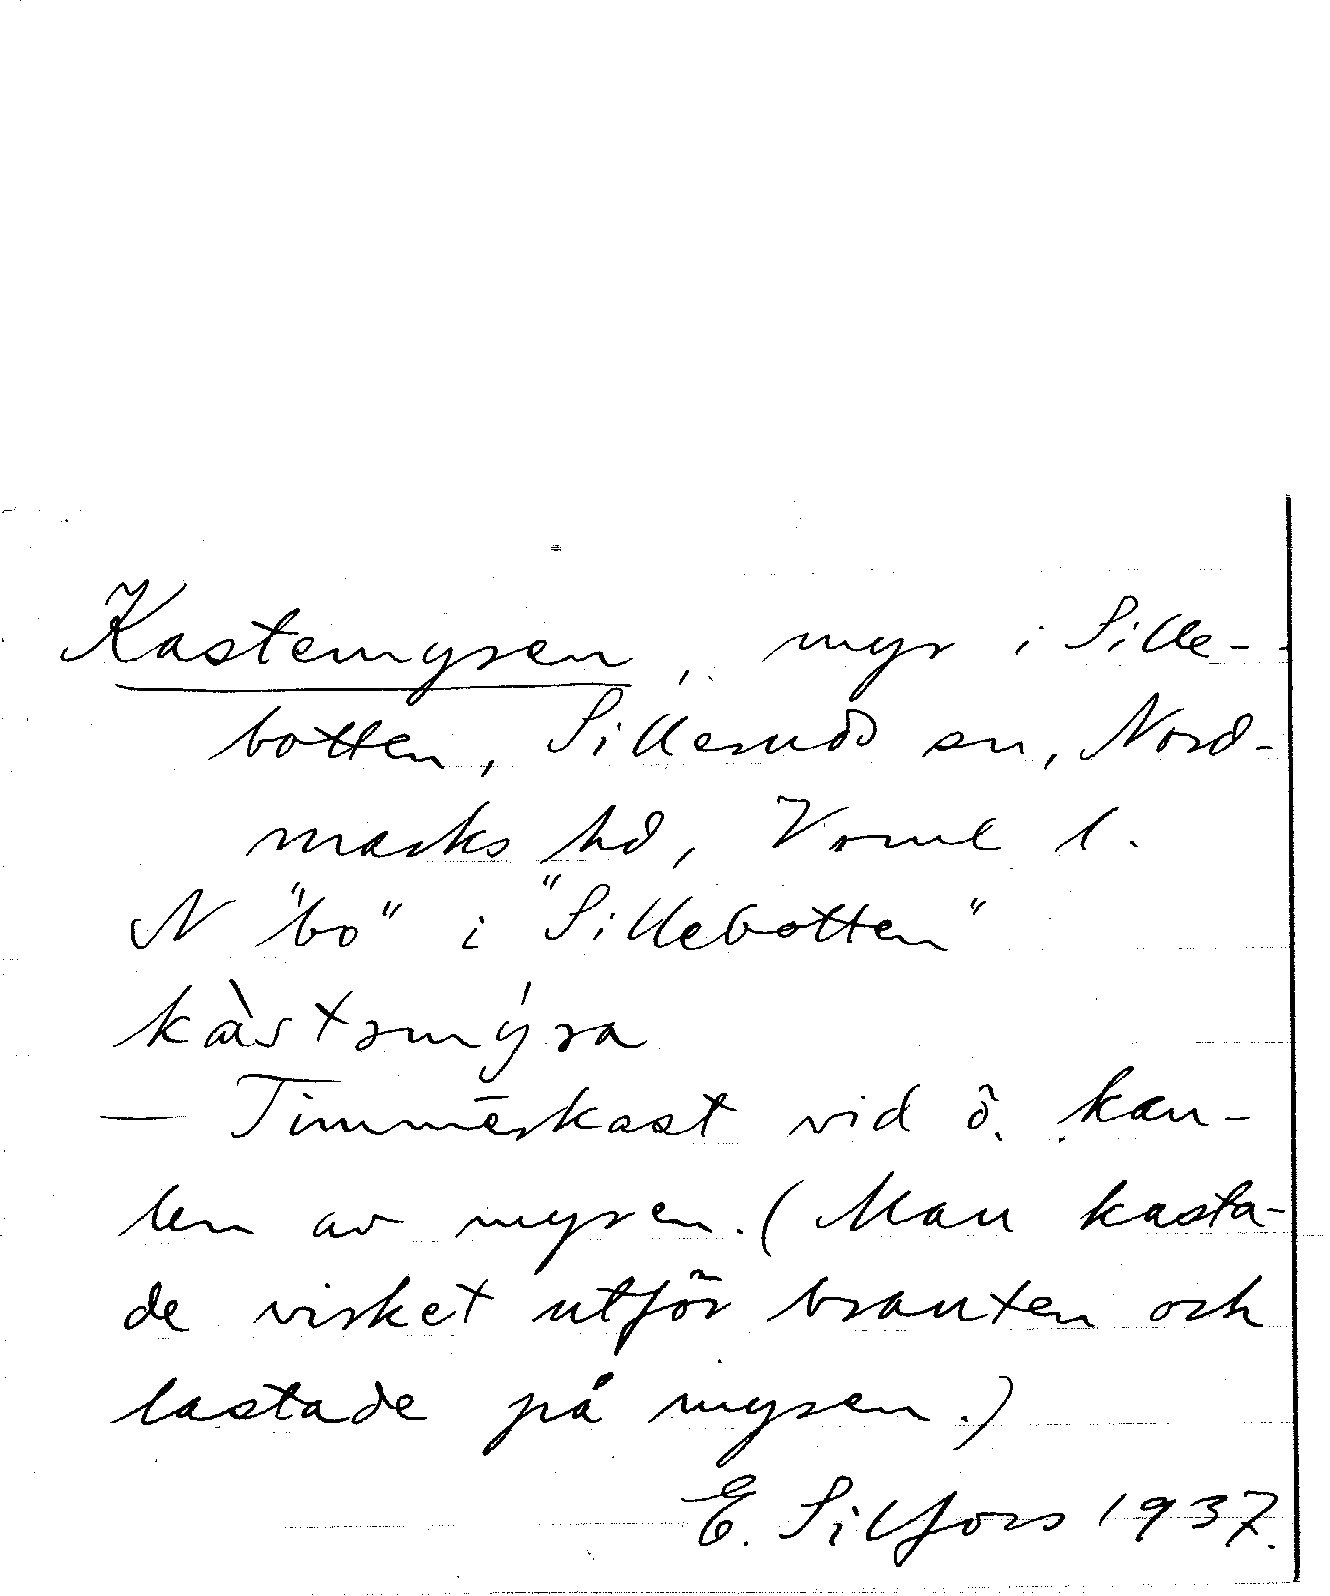 Kastemyren, myr i Sille-
botten, Silleruds sn, Nord-
marks hd, Vrml l.
N "bo" i "Sillebotten"
kàstəmýra
— Timmerkast vid ö. kan-
ten av myren. (Man kasta-
de virket utför branten och
lastade på myren.)
E. Silfors 1937.